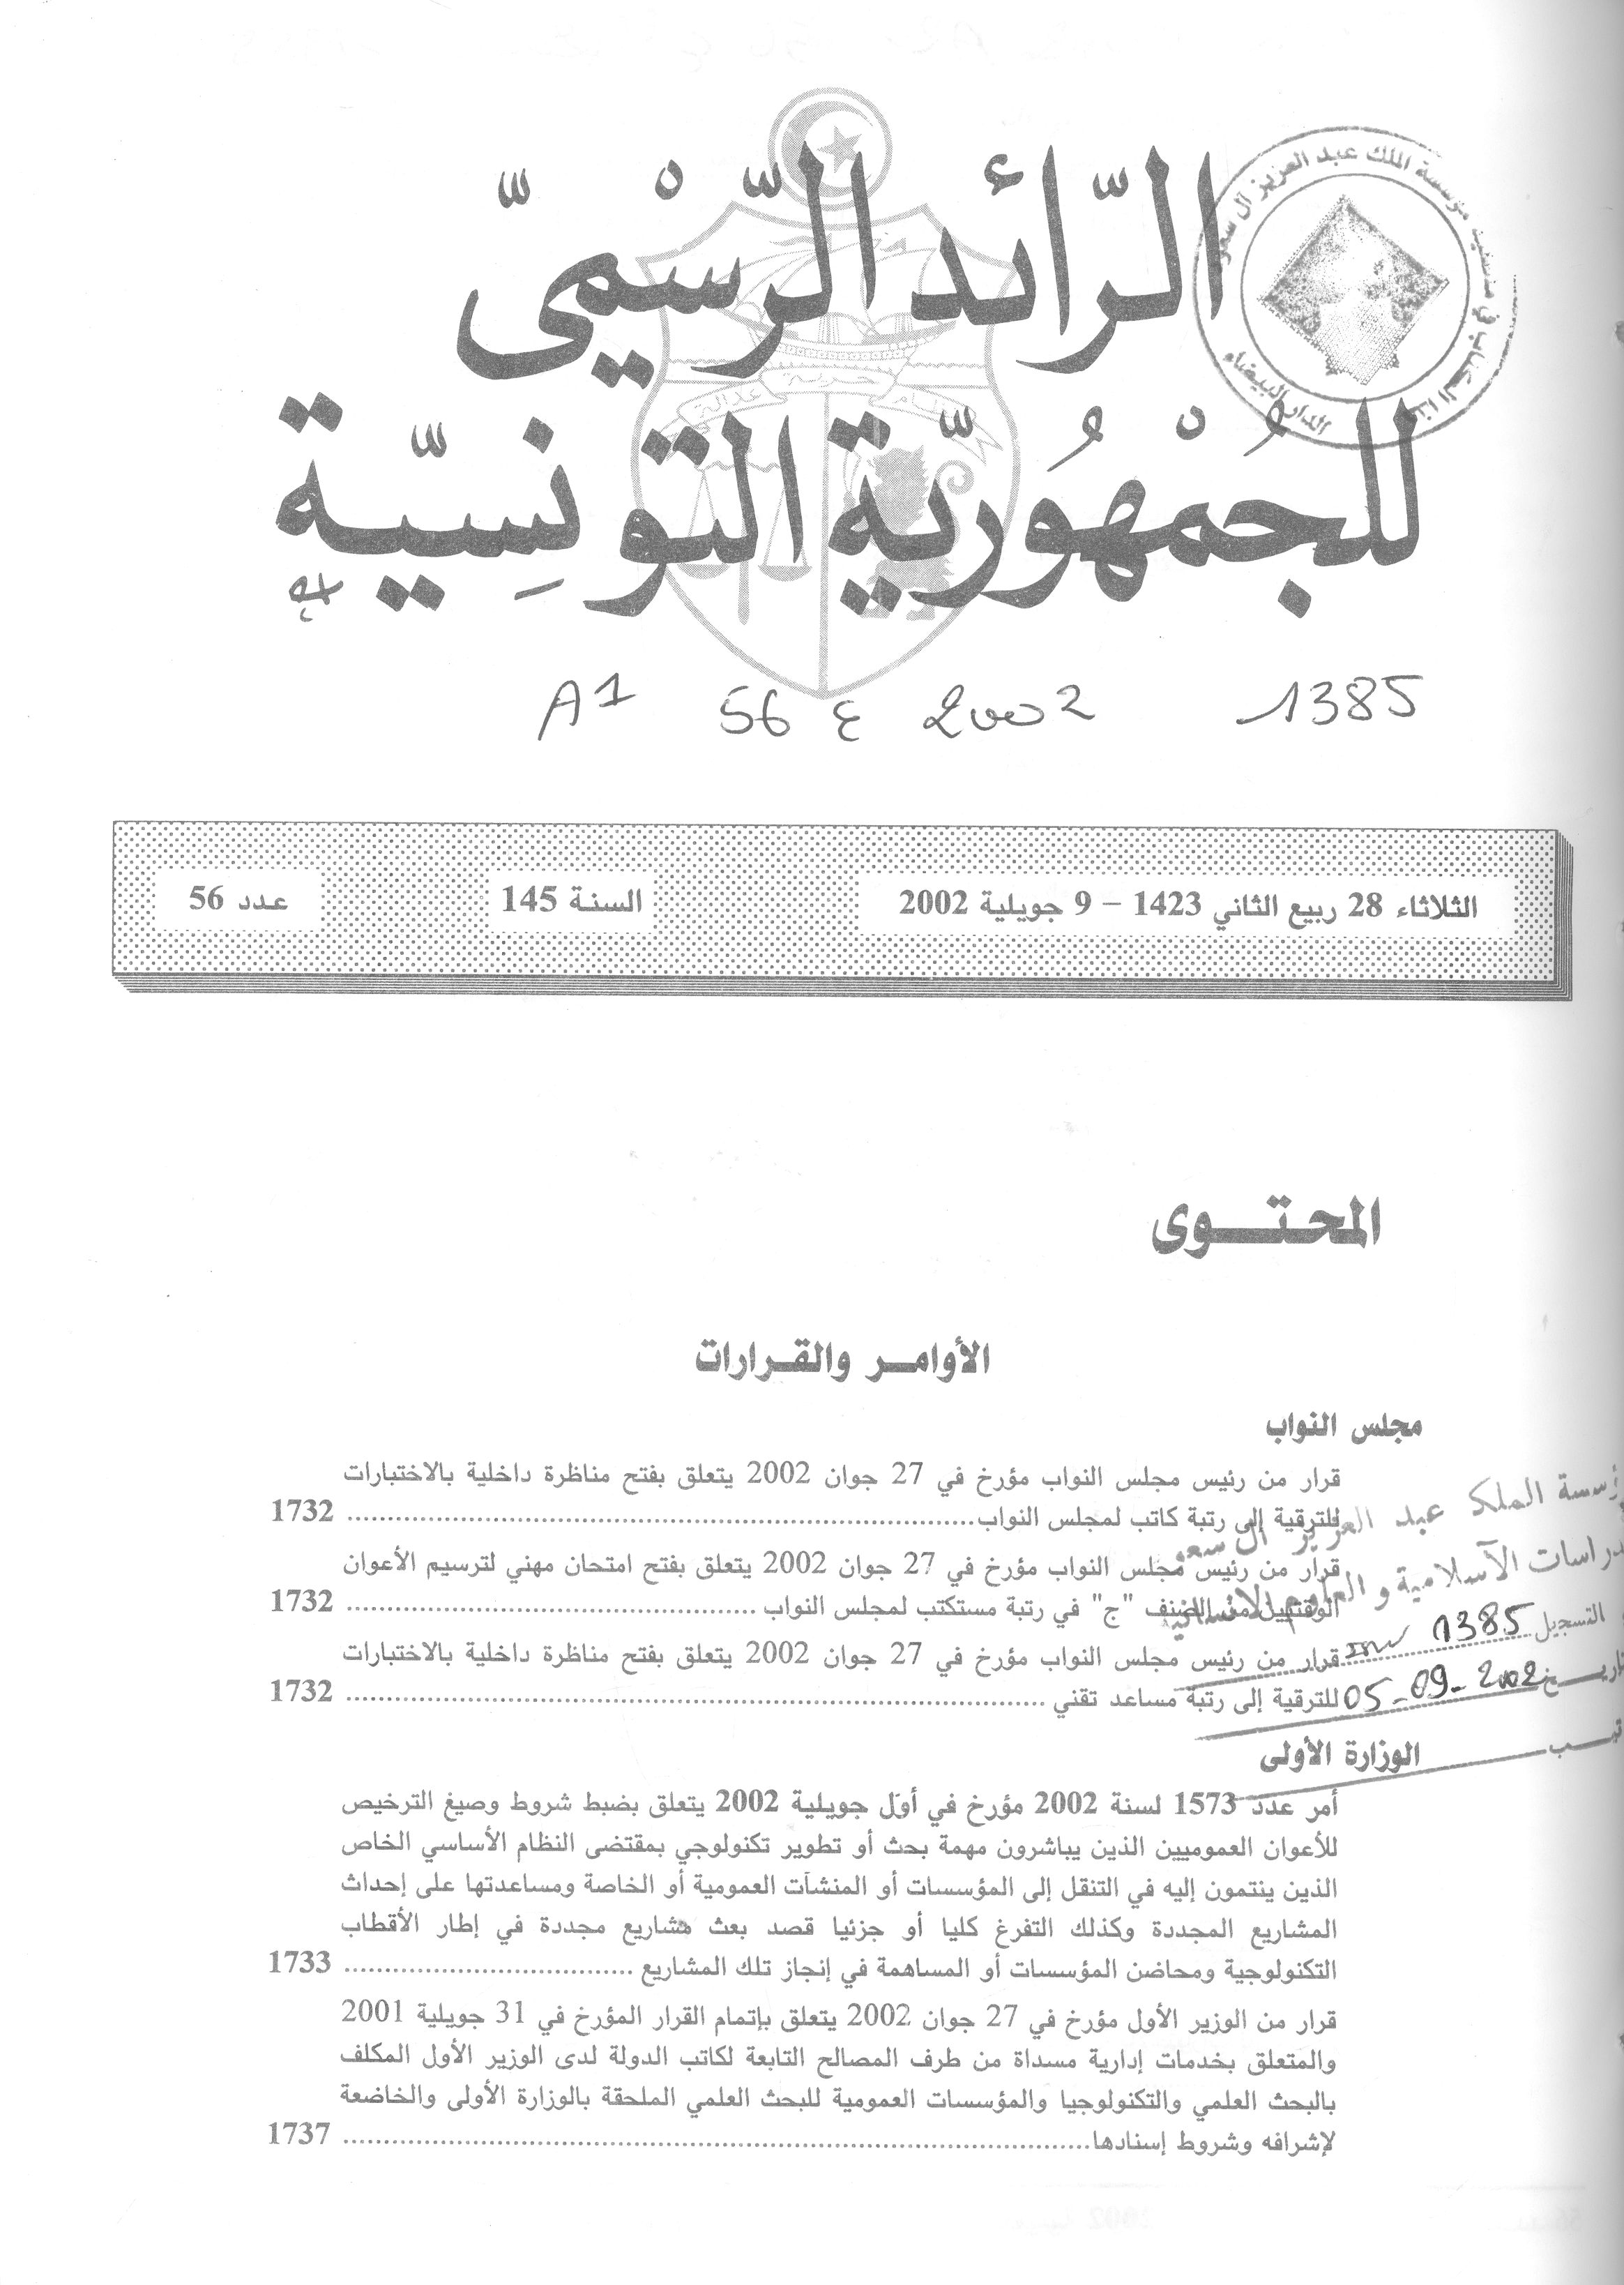 الرّائد الرّسْميّ
للجُمْهُوريّة التّونِسيّة
مؤسسة الملك عبد العزيز آل سعود
الدار البيضاء
حرية
عدالة
A1 56 ع 2002 1385
الثلاثاء 28 ربيع الثاني 1423 – 9 جويلية 2002
السنة 145
عدد 56
المحتوى
الأوامر والقرارات
مجلس النواب
قرار من رئيس مجلس النواب مؤرخ في 27 جوان 2002 يتعلق بفتح مناظرة داخلية بالاختبارات
للترقية إلى رتبة كاتب لمجلس النواب 1732
قرار من رئيس مجلس النواب مؤرخ في 27 جوان 2002 يتعلق بفتح امتحان مهني لترسيم الأعوان
الوقتيين من الصنف "ج" في رتبة مستكتب لمجلس النواب 1732
قرار من رئيس مجلس النواب مؤرخ في 27 جوان 2002 يتعلق بفتح مناظرة داخلية بالاختبارات
للترقية إلى رتبة مساعد تقني 1732
الملك عبد العزيز آل سعود
الآسلامية والعلوم الانسانية
التسجيل 1385
05-09-2002
الوزارة الأولى
أمر عدد 1573 لسنة 2002 مؤرخ في أوّل جويلية 2002 يتعلق بضبط شروط وصيغ الترخيص
للأعوان العموميين الذين يباشرون مهمة بحث أو تطوير تكنولوجي بمقتضى النظام الأساسي الخاص
الذين ينتمون إليه في التنقل إلى المؤسسات أو المنشآت العمومية أو الخاصة ومساعدتها على إحداث
المشاريع المجددة وكذلك التفرغ كليا أو جزئيا قصد بعث مشاريع مجددة في إطار الأقطاب
التكنولوجية ومحاضن المؤسسات أو المساهمة في إنجاز تلك المشاريع 1733
قرار من الوزير الأول مؤرخ في 27 جوان 2002 يتعلق بإتمام القرار المؤرخ في 31 جويلية 2001
والمتعلق بخدمات إدارية مسداة من طرف المصالح التابعة لكاتب الدولة لدى الوزير الأول المكلف
بالبحث العلمي والتكنولوجيا والمؤسسات العمومية للبحث العلمي الملحقة بالوزارة الأولى والخاضعة
لإشرافه وشروط إسنادها 1737